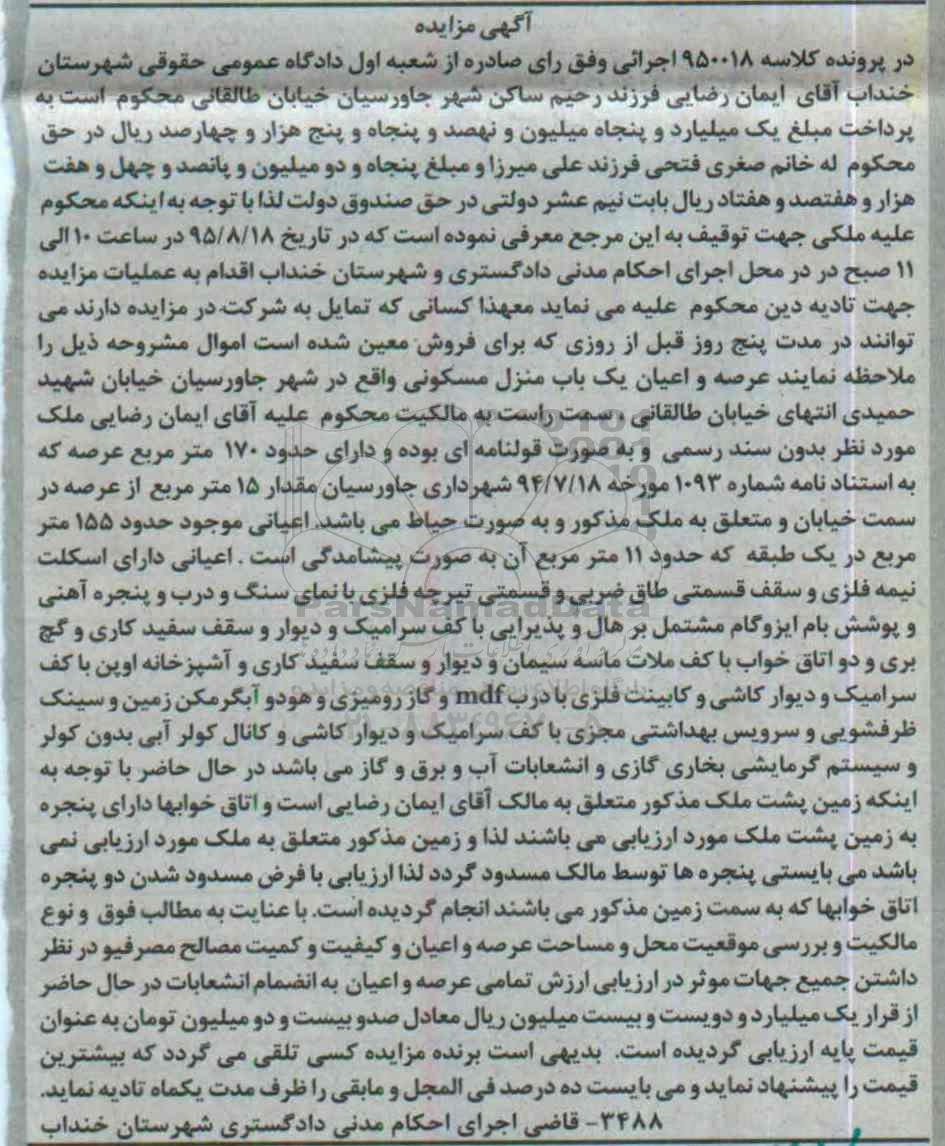 آگهی مزایده
در پرونده کلاسه ۹۵۰۰۱۸ اجرائی وفق رای صادره از شعبه اول دادگاه عمومی حقوقی شهرستان
خنداب آقای ایمان رضایی فرزند رحیم ساکن شهر جاورسیان خیابان طالقانی محکوم است به
پرداخت مبلغ یک میلیارد و پنجاه میلیون و نهصد و پنجاه و پنج هزار و چهارصد ریال در حق
محکوم له خانم صغری فتحی فرزند علی میرزا و مبلغ پنجاه و دو میلیون و پانصد و چهل و هفت
هزار و هفتصد و هفتاد ریال بابت نیم عشر دولتی در حق صندوق دولت لذا با توجه به اینکه محکوم
علیه ملکی جهت توقیف به این مرجع معرفی نموده است که در تاریخ ۹۵/۸/۱۸ در ساعت ۱۰ الی
۱۱ صبح در در محل اجرای احکام مدنی دادگستری و شهرستان خنداب اقدام به عملیات مزایده
جهت تادیه دین محکوم علیه می نماید معهذا کسانی که تمایل به شرکت در مزایده دارند می
توانند در مدت پنج روز قبل از روزی که برای فروش معین شده است اموال مشروحه ذیل را
ملاحظه نمایند عرصه و اعیان یک باب منزل مسکونی واقع در شهر جاورسیان خیابان شهید
حمیدی انتهای خیابان طالقانی ، سمت راست به مالکیت محکوم علیه آقای ایمان رضایی ملک
مورد نظر بدون سند رسمی و به صورت قولنامه ای بوده و دارای حدود ۱۷۰ متر مربع عرصه که
به استناد نامه شماره ۱۰۹۳ مورخه ۹۴/۷/۱۸ شهرداری جاورسیان مقدار ۱۵ متر مربع از عرصه در
سمت خیابان و متعلق به ملک مذکور و به صورت حیاط می باشد. اعیانی موجود حدود ۱۵۵ متر
مربع در یک طبقه که حدود ۱۱ متر مربع آن به صورت پیشامدگی است . اعیانی دارای اسکلت
نیمه فلزی و سقف قسمتی طاق ضربی و قسمتی تیرچه فلزی با نمای سنگ و درب و پنجره آهنی
و پوشش بام ایزوگام مشتمل بر هال و پذیرایی با کف سرامیک و دیوار و سقف سفید کاری و گچ
بری و دو اتاق خواب با کف ملات ماسه سیمان و دیوار و سقف سفید کاری و آشپزخانه اوپن با کف
سرامیک و دیوار کاشی و کابینت فلزی با درب mdf و گاز رومیزی و هودو آبگرمکن زمین و سینک
ظرفشویی و سرویس بهداشتی مجزی با کف سرامیک و دیوار کاشی و کانال کولر آبی بدون کولر
و سیستم گرمایشی بخاری گازی و انشعابات آب و برق و گاز می باشد در حال حاضر با توجه به
اینکه زمین پشت ملک مذکور متعلق به مالک آقای ایمان رضایی است و اتاق خوابها دارای پنجره
به زمین پشت ملک مورد ارزیابی می باشند لذا و زمین مذکور متعلق به ملک مورد ارزیابی نمی
باشد می بایستی پنجره ها توسط مالک مسدود گردد لذا ارزیابی با فرض مسدود شدن دو پنجره
اتاق خوابها که به سمت زمین مذکور می باشند انجام گردیده است. با عنایت به مطالب فوق و نوع
مالکیت و بررسی موقعیت محل و مساحت عرصه و اعیان و کیفیت و کمیت مصالح مصرفیو در نظر
داشتن جمیع جهات موثر در ارزیابی ارزش تمامی عرصه و اعیان به انضمام انشعابات در حال حاضر
از قرار یک میلیارد و دویست و بیست میلیون ریال معادل صدو بیست و دو میلیون تومان به عنوان
قیمت پایه ارزیابی گردیده است. بدیهی است برنده مزایده کسی تلقی می گردد که بیشترین
قیمت را پیشنهاد نماید و می بایست ده درصد فی المجل و مابقی را ظرف مدت یکماه تادیه نماید.
۳۴۸۸- قاضی اجرای احکام مدنی دادگستری شهرستان خنداب
ParsNamadData